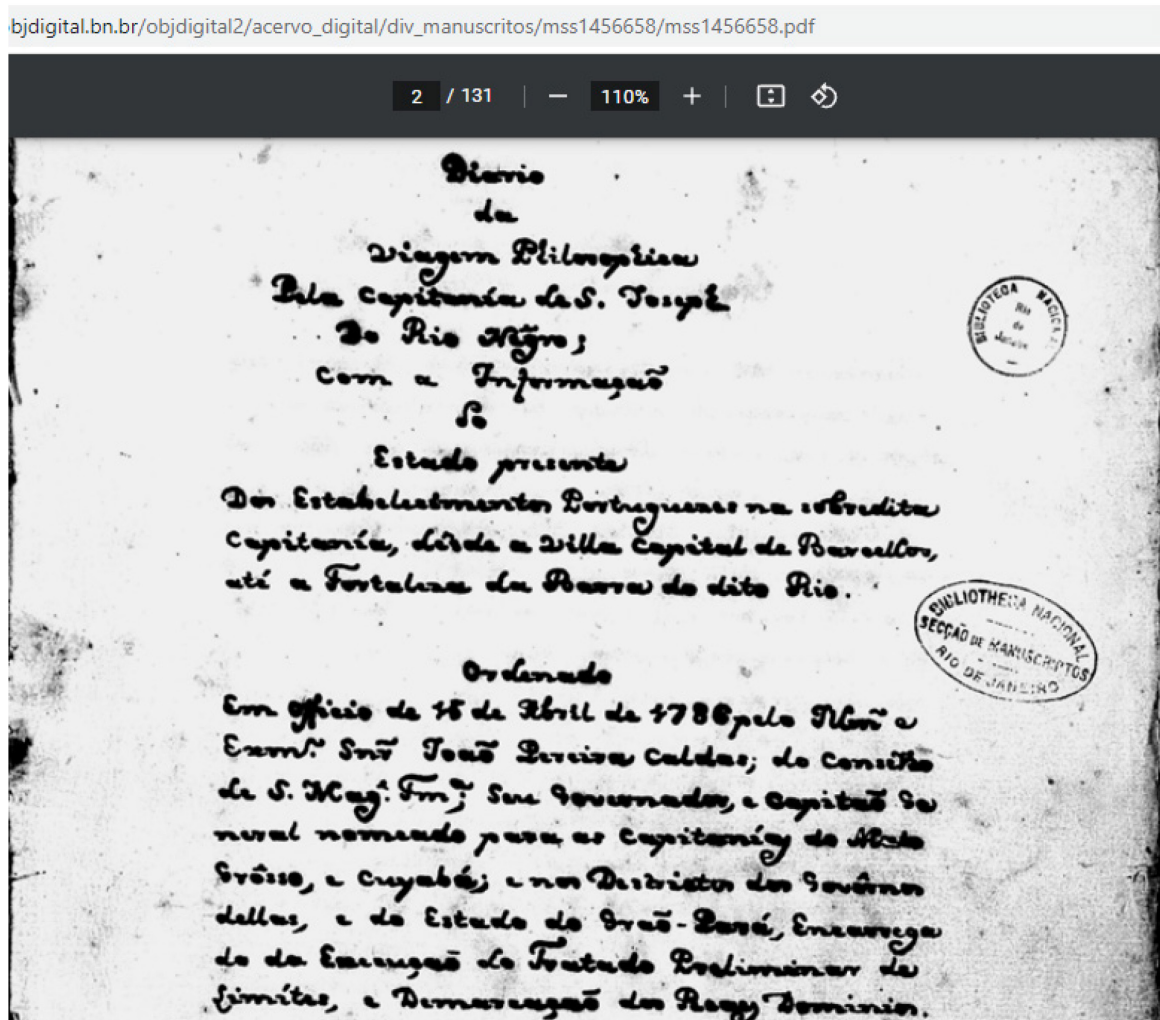 bjdigital.bn.br/objdigital2/acervo_digital/div_manuscritos/mss1456658/mss1456658.pdf
2 / 131 | — 110% + |
Diario
da
Viagem Philosophica
Pela Capitanía de S. Joseph
Do Rio Nêgro;
com a Informaçaõ
Do
Estado presente
Dos Estabelecimentos Portuguezes na sobredita
Capitanía, dêsde a Villa Capital de Barcellos,
até a Fortaleza da Barra do dito Rio.
BIBLIOTECA NACIONAL
Rio
de
Janeiro
BIBLIOTHECA NACIONAL
SECÇÃO DE MANUSCRIPTOS
RIO DE JANEIRO
Ordenado
Em officio de 15 de Abril de 1786 pelo Illm̃ e
Exmº. Snr̃ Joaõ Pereira Caldas; do Conselho
de S. Mag.ᵉ Fm.ª; Seu Governador, e Capitaõ Ge
neral nomeado para as Capitanías do Mato
Grôsso, e Cuyabá; e nos Destrictos dos Govêrnos
dellas, e do Estado do Graõ-Pará, Encarrega
do da Execuçaõ do Tratado Preliminar de
Limítes, e Demarcaçaõ dos Reaes Dominios.